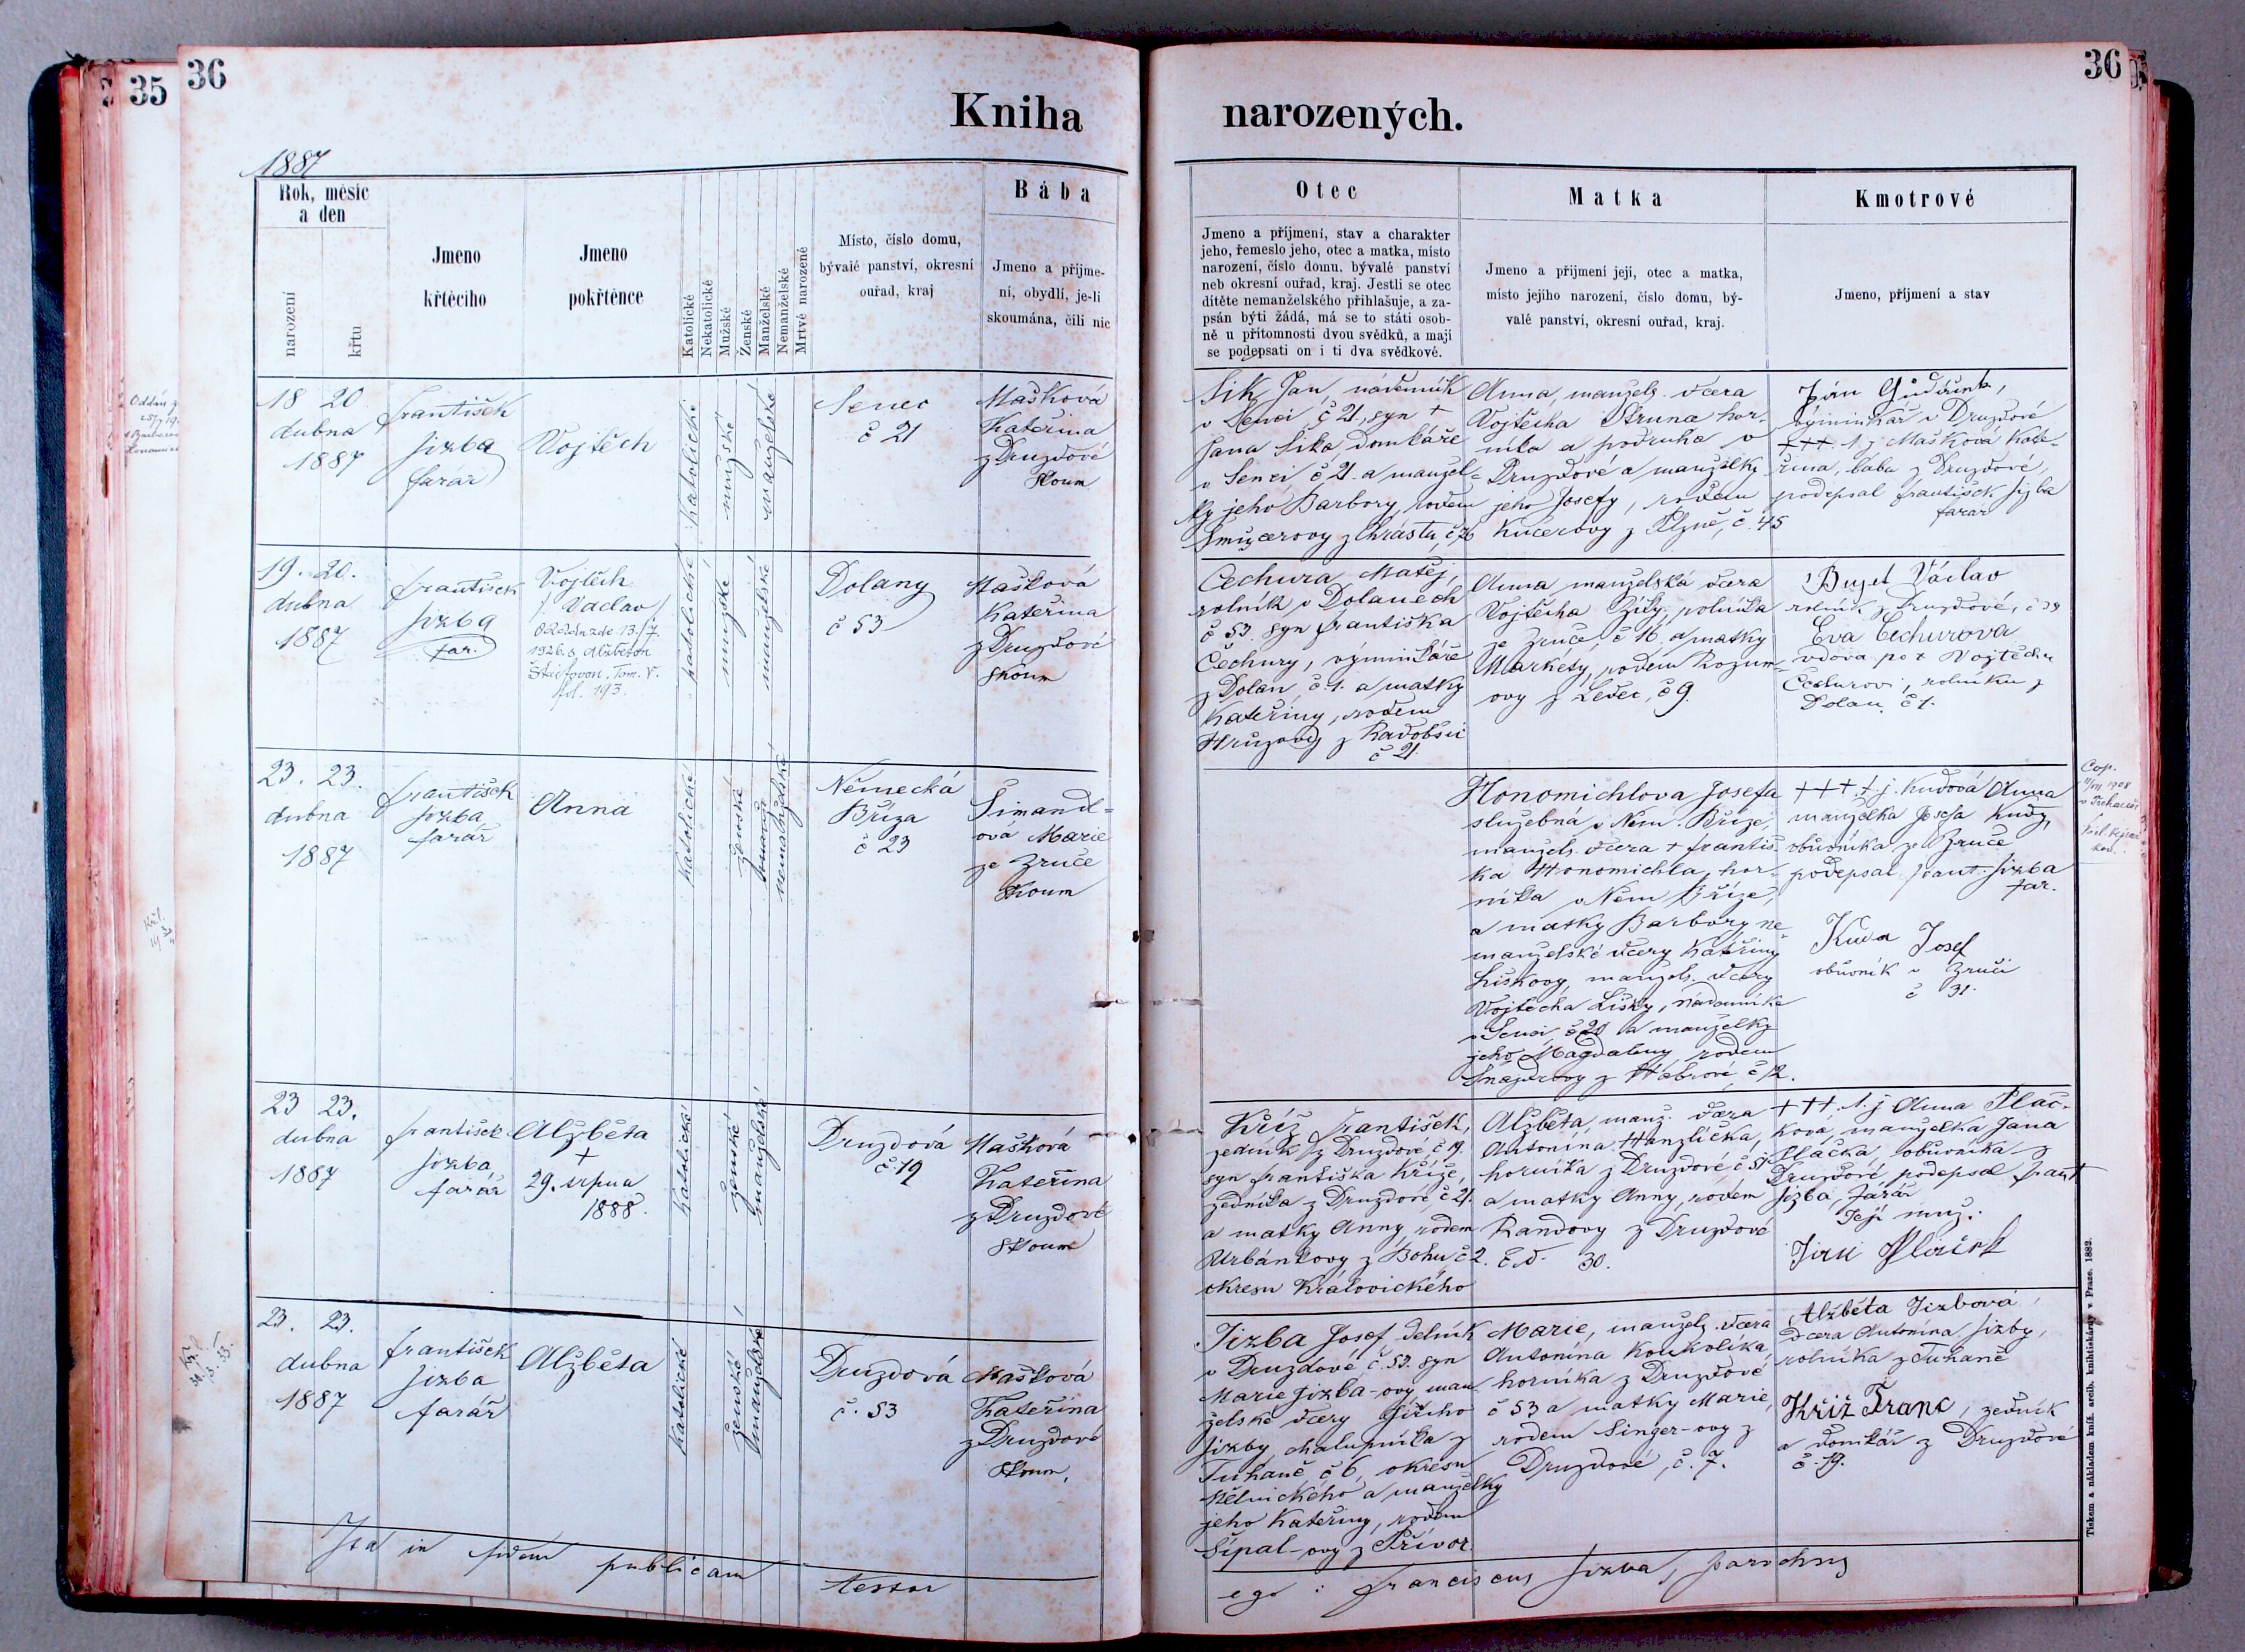 35
36
36
Kniha
narozených.
1887
Rok, měsíc
a den
narození
křtu
Jmeno
křtěcího
Jmeno
pokřtěnce
Katolické
Nekatolické
Mužské
Ženské
Manželské
Nemanželské
Mrtvé narozené
Místo, číslo domu,
bývalé panství, okresní
ouřad, kraj
Bába
Jmeno a příjme-
ní, obydlí, je-li
skoumána, čili nic
Otec
Jmeno a příjmení, stav a charakter
jeho, řemeslo jeho, otec a matka, místo
narození, číslo domu. bývalé panství
neb okresní ouřad, kraj. Jestli se otec
dítěte nemanželského přihlašuje, a za-
psán býti žádá, má se to státi osob-
ně u přítomnosti dvou svědků, a mají
se podepsati on i ti dva svědkové.
Matka
Jmeno a příjmení její, otec a matka,
místo jejího narození, číslo domu, bý-
valé panství, okresní ouřad, kraj.
Kmotrové
Jmeno, příjmení a stav
18 20
dubna
1887
František
Jizba
farář
Vojtěch
katolické
mužské
manželské
Senec
č 21
Mašková
Kateřina
z Druzdové
skoum
Sik Jan, nádenník
v Senci č 21, syn +
Jana Sika, domkáře
v Senci č 21. a manžel-
ky jeho Barbory, rodem
Šmízcerovy z Chrástu, č 76
Anna, manžels. dcera
Vojtěcha Struna hor-
níka a podruha v
Druzdové a manželky
jeho Josefy, rodem
Kučerovy z Plzně, č. 45
výminkář v Druzdové
+++ t. j. Maškova Kate-
řina, bába z Druzdové,
podepsal František Jizba
farář
19. 20.
dubna
1887
František
Jizba
far.
Vojtěch
/Václav/
Oddán zde 13./7.
1926 s Alžbětou
Tom. V.
fol. 193.
katolické
mužské
manželské
Dolany
č 53
Mašková
Kateřina
z Druzdové
skoum
Čechura Matěj,
rolník v Dolanech
č 53. syn Františka
Čechury, výminkáře
z Dolan č 1. a matky
Kateřiny, rodem
Hrůzovy z Radobčic
č 21.
Anna, manželská dcera
Vojtěcha Zíky, rolníka
ze Zruče, č 16. a matky
Markety, rodem Rozum-
ovy z Ledec, č 9.
Václav
rolník z Druzdové, č 39
Eva Čechurova
vdova po + Vojtěchu
Čechurovi, rolníku z
Dolan. č 1.
23. 23.
dubna
1887
František
Jizba
farář
Anna
katolické
ženské
nemanželské
Německá
Bříza
č 23
Šimandl-
ová Marie
ze Zruče
skoum
Honomichlova Josefa
služebna v Něm. Bříze,
manžels. dcera + Františ-
ka Honomichla, hor-
níka v Něm Bříze,
a matky Barbory, ne-
manželské dcery Kateřiny
Liškovy, manžels. dcery
Vojtěcha Lišky, nádenníka
v Senci č 20 a manželky
jeho Magdaleny, rodem
Šnajdrovy z Habrové, č 12.
+++ t. j. Kudová Anna
manželka Josefa Kudy,
obuvníka ze Zruče
podepsal Frant. Jizba
far.
Kuda Josef
obuvník v Zruči
č 31.
Cop.
23 23.
dubna
1887
František
Jizba,
farář
Alžběta
+
29. srpna
1888.
katolické
ženské
manželské
Druzdová
č. 19
Mašková
Kateřina
z Druzdové
skoum
Kříž František,
zedník z Druzdové, č 19.
syn Františka Kříže,
zedníka z Druzdové, č 21.
a matky Anny, rodem
Urbánkovy z Bohu, č 2.
okresu Královického
Alžběta, manž. dcera
Antonína Hanzlíčka,
horníka z Druzdové č 51
a matky Anny, rodem
Randovy z Druzdové
č. d. 30.
+++ t. j. Anna Pláč-
kova, manželka Jana
Pláčka, obuvníka z
Druzdové podepsal Frant
Jizba, farář
Její muž:
23. 23.
dubna
1887
František
Jizba
farář
Alžběta
katolické
ženské
manželské
Druzdová
č. 53
Mašková
Kateřina
z Druzdové
skoum.
Jizba Josef dělník
v Druzdové č. 53. syn
Marie Jizba-ovy man-
želské dcery Jiřího
Jizby, chalupníka z
Tuhaně č 6, okresu
Mělnického a manželky
jeho Kateřiny, rodem
Šípal-ovy z Přívor.
Marie, manžels. dcera
Antonína Koukolíka,
horníka z Druzdové
č 53 a matky Marie,
rodem Singer-ovy z
Druzdové, č. 7.
Alžběta Jizbová,
dcera Antonína Jizby,
rolníka z Tuhaně
Kříž Franc, zedník
a domkář z Druzdové
č. 19.
Ita in fidem publicam testor
ego: Franciscus Jizba, parochus
Tiskem a nákladem kníž. arcib. knihtiskárny v Praze. 1882.